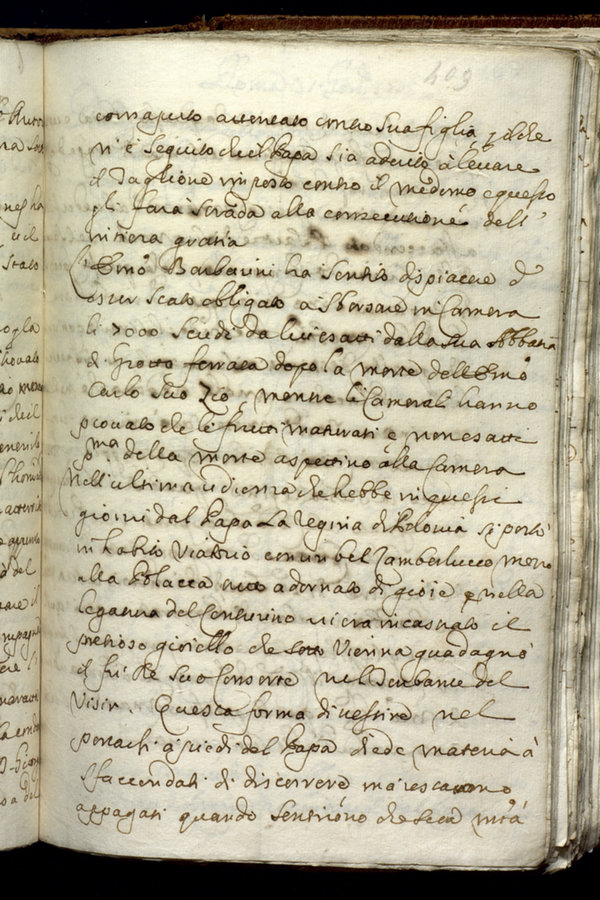 409
comaputo attentato contro Sua figlia, p̲ il che
n'è Seguito che il Papa sia adeuito à leuare
il Taglione imposto contro il medemo e questo
gli farà Strada alla consecutione dell'
intiera gratia
L'Em̃o Barberini ha sentito dispiacere d'
esser stato obligato a sborsare in Camera
li 7000 scudi da lui esatti dalla sua Abbatia
di Grotta ferrata dopo la morte dell'Em̃o
Carlo suo Zio, mentre li Camerali hanno
prouato che le frutti maturati e non esatti
p̲ma della morte aspettino alla Camera
Nell'ultima udienza che hebbe in questi
giorni dal Papa La Regina di Polonia si portò
in habito Viatorio con un bel Zamberlucco mezzo
alla Polacca tutto adornato di gioie e nella
legatura del Centurino ui era incastrato il
pretioso gioiello che sotto Vienna guadagnò
il fù Re suo Consorte nel Turbante del
Visir. Questa forma di uestire nel
portarsi a' piedi del Papa diede materia à
sfaccendati di discorrere mà restarono
appagati quando sentirono che seco